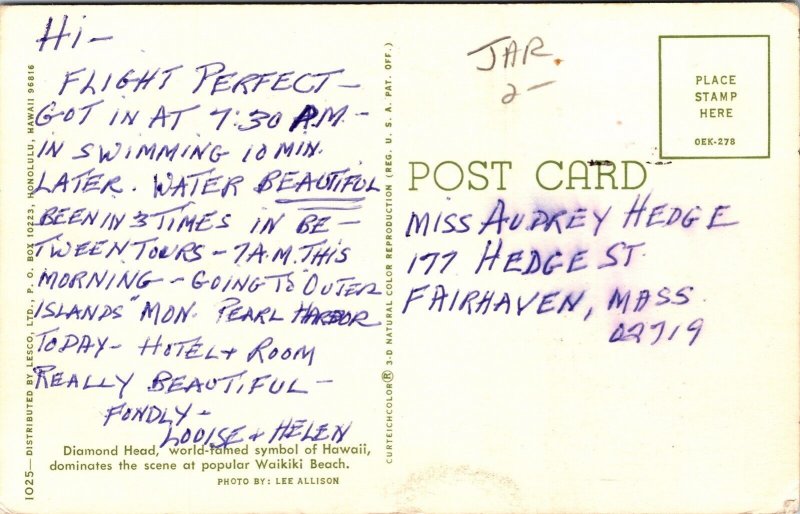 Hi-
FLIGHT PERFECT-
GOT IN AT 7:30 P.M.-
IN SWIMMING 10 MIN.
LATER. WATER BEAUTIFUL
BEEN IN 3 TIMES IN BE-
TWEEN TOURS - 7 A.M. THIS
MORNING - GOING TO "OUTER
ISLANDS" MON. PEARL HARBOR
TODAY- HOTEL + ROOM
REALLY BEAUTIFUL -
FONDLY-
LOUISE + HELEN
Diamond Head, world-famed symbol of Hawaii,
dominates the scene at popular Waikiki Beach.
PHOTO BY: LEE ALLISON
1025—DISTRIBUTED BY LESCO, LTD., P. O. BOX 10223, HONOLULU, HAWAII 96816
CURTEICHCOLOR® 3-D NATURAL COLOR REPRODUCTION (REG. U. S. A. PAT. OFF.)
JAR
2-
PLACE
STAMP
HERE
OEK-278
POST CARD
MISS AUDREY HEDGE
177 HEDGE ST.
FAIRHAVEN, MASS.
02719